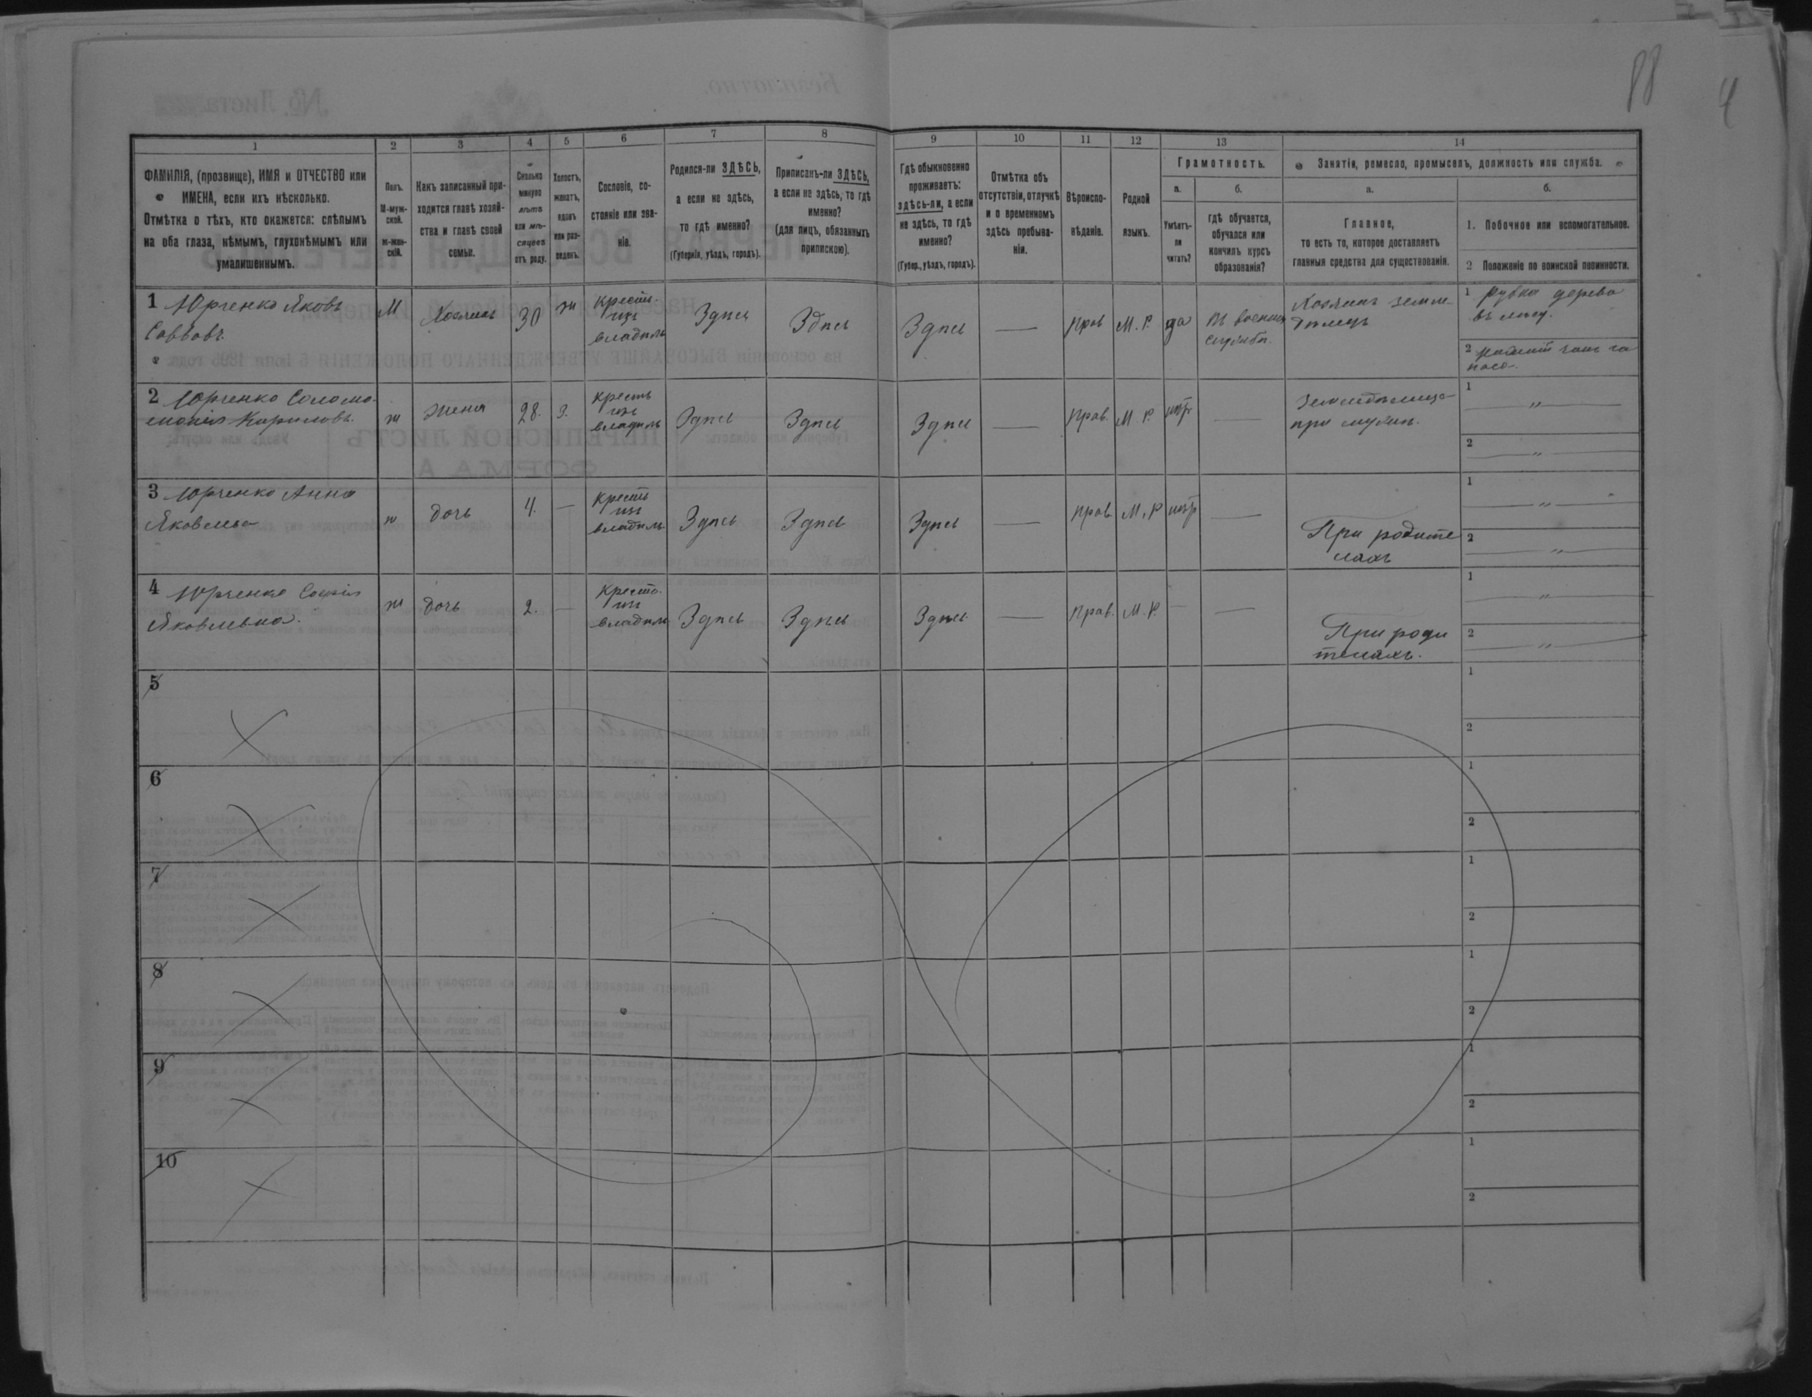 88
4
1
2
3
4
5
6
7
8
9
10
11
12
13
14
ФАМИЛІЯ, (прозвище), ИМЯ и ОТЧЕСТВО или
ИМЕНА, если ихъ нѣсколько.
Отмѣтка о тѣхъ, кто окажется: слѣпымъ
на оба глаза, нѣмымъ, глухонѣмымъ или
умалишеннымъ.
Полъ.
М-муж-
ской.
ж-жен-
скій.
Какъ записанный при-
ходится главѣ хозяй-
ства и главѣ своей
семьи.
Сколько
минуло
лѣтъ
или мѣ-
сяцевъ
отъ роду.
Холостъ,
женатъ,
вдовъ
или раз-
веденъ.
Сословіе, со-
стояніе или зва-
ніе.
Родился-ли ЗДѢСЬ,
а если не здѣсь,
то гдѣ именно?
(Губернія, уѣздъ, городъ).
Приписанъ-ли ЗДѢСЬ,
а если не здѣсь, то гдѣ
именно?
(для лицъ, обязанныхъ
припискою).
Гдѣ обыкновенно
проживаетъ:
здѣсь-ли, а если
не здѣсь, то гдѣ
именно?
(Губер., уѣздъ, городъ).
Отмѣтка объ
отсутствіи, отлучкѣ
и о временномъ
здѣсь пребыва-
ніи.
Вѣроиспо-
вѣданіе.
Родной
языкъ.
Грамотность.
а.
Умѣетъ-
ли
читать?
б.
гдѣ обучается,
обучался или
кончилъ курсъ
образованія?
Занятіе, ремесло, промыселъ, должность или служба.
а.
Главное,
то есть то, которое доставляетъ
главныя средства для существованія.
б.
1. Побочное или вспомогательное.
2 Положеніе по воинской повинности.
1 Юрченко Яковъ
Саввовъ
М
Хозяинъ
30
ж
Крестья-
изъ
владѣль
Здѣсь
Здѣсь
Здѣсь
—
прав
М. Р.
да
въ военной
службѣ.
Хозяинъ земле-
дѣлецъ
1 рубка дерева
въ лѣсу.
2
2 Юрченко Соломо-
Кириловъ.
ж
жена
28.
З.
Кресть
изъ
владѣль
Здѣсь
Здѣсь
Здѣсь
—
Прав.
М. Р.
нѣт
—
при мужѣ.
1 "
2 "
3 Юрченко Анна
Яковлева
ж
дочь
4.
—
Крестья
изъ
владѣль
Здѣсь
Здѣсь
Здѣсь
—
прав
М. Р
нѣт
—
При родите
ляхъ
1 "
2 "
4 Юрченко Софія
Яковлевна.
ж
дочь
2.
—
Крестья.
изъ
владѣль
Здѣсь
Здѣсь
Здѣсь
—
Прав.
М. Р.
—
—
При роди
теляхъ.
1 "
2 "
5
1
2
6
1
2
7
1
2
8
1
2
9
1
2
10
1
2